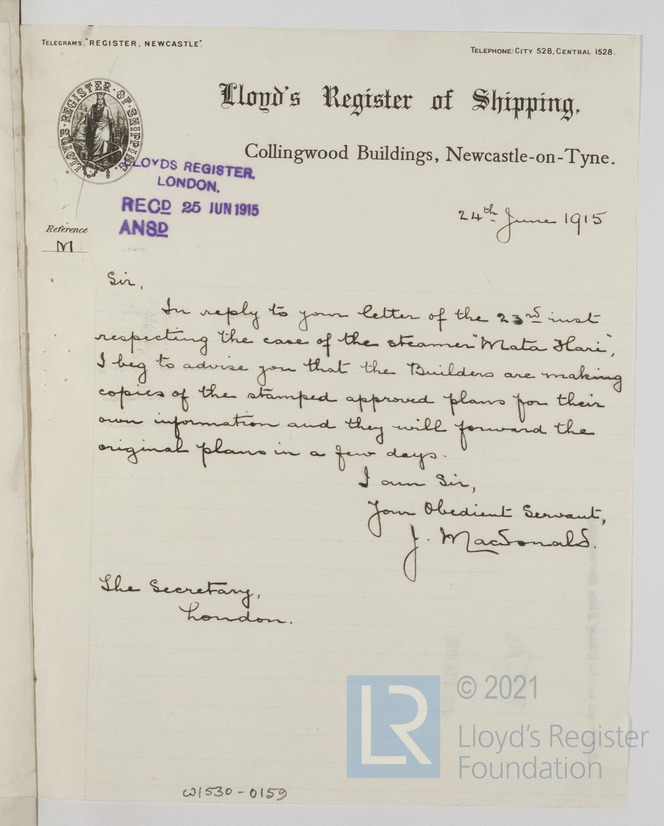 TELEGRAMS, "REGISTER, NEWCASTLE".
TELEPHONE: CITY 528, CENTRAL 1528.
Lloyd's Register of Shipping,
LLOYD'S·REGISTER·OF·SHIPPING
Collingwood Buildings, Newcastle-on-Tyne.
LLOYDS REGISTER.
LONDON.
RECD 25 JUN 1915
ANSD
24th June 1915
Reference
M
Sir,
In reply to your letter of the 23rd inst
respecting the case of the steamer "Mata Hari",
I beg to advise you that the Builders are making
copies of the stamped approved plans for their
own information and they will forward the
original plans in a few days.
I am Sir,
Your Obedient Servant,
J. MacDonald.
The Secretary,
London.
LR
© 2021
Lloyd's Register
Foundation
W1530-0159